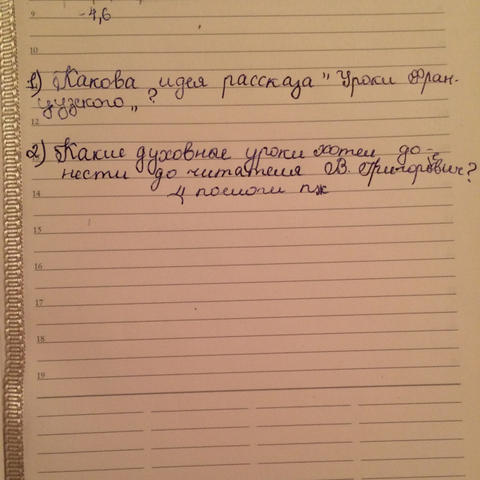 9
-4,6
10
1) Какова идея рассказа "Уроки Фран-
цузского„ ?
12
2) Какие духовные уроки хотел до-
нести до читателя В. Григорьевич?
14
помоги пж
15
16
17
18
19